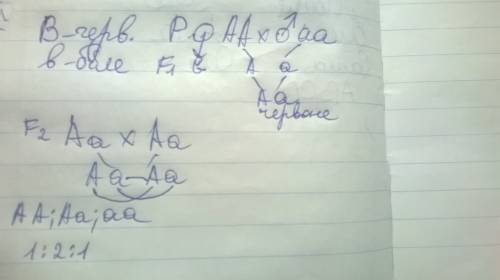 В-черв. P ♀ AA x ♂ aa
в-біле F₁ A a
Aa
червоне
F₂ Aa x Aa
Aa-Aa
AA; Aa; aa
1:2:1